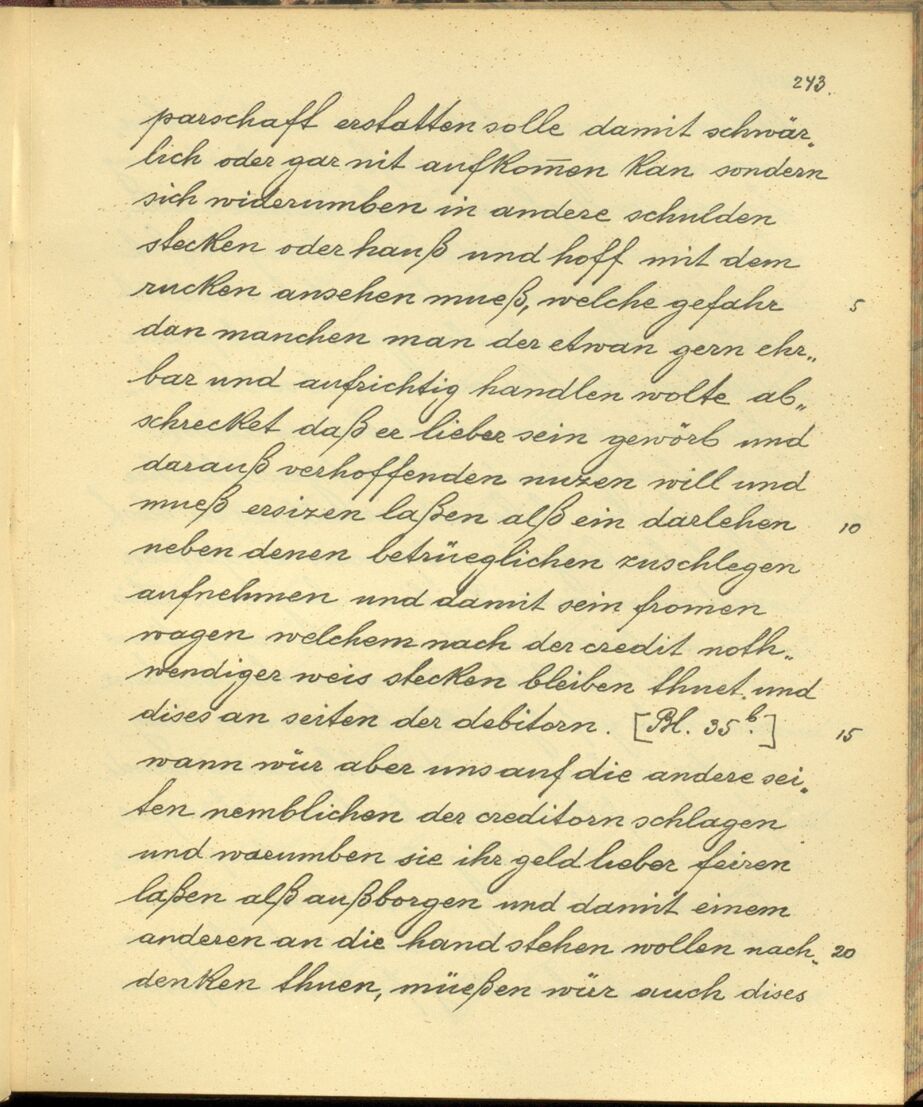 243.
parschaft erstatten solle damit schwär„
lich oder gar nit aufkom̄en kan sondern
sich widerumben in andere schulden
stecken oder hauß und hoff mit dem
rucken ansehen mueß, welche gefahr 5
dan manchen man der etwan gern ehr„
bar und aufrichtig handlen wolte ab„
schrecket daß er lieber sein gewörb und
darauß verhoffenden nuzen will und
mueß ersizen laßen alß ein darlehen 10
neben denen betrüeglichen zuschlegen
aufnehmen und damit sein fromen
wagen welchem nach der credit noth„
wendiger weis stecken bleiben thuet. und
dises an seiten der debitorn. [Bl. 35ᵇ.] 15
wann wür aber uns auf die andere sei„
ten nemblichen der creditorn schlagen
und warumben sie ihr geld lieber feiren
laßen alß außborgen und damit einem
anderen an die hand stehen wollen nach„ 20
denken thuen, müeßen wür auch dises